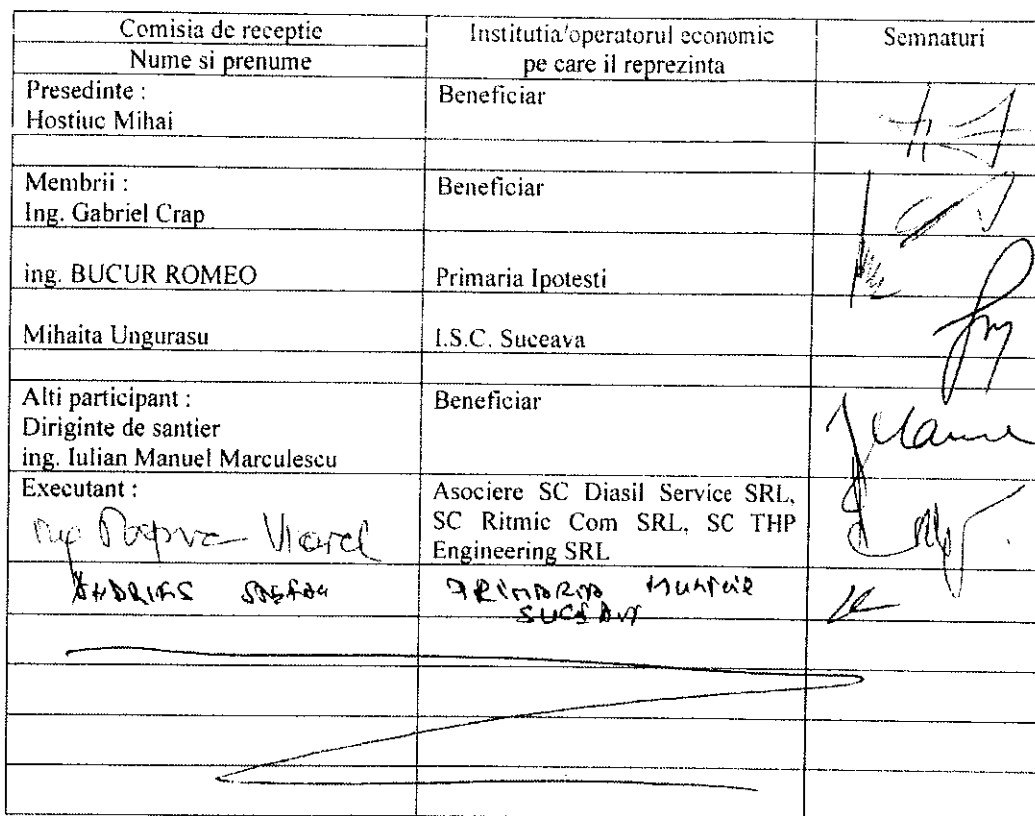 Comisia de receptie
Nume si prenume
Institutia/operatorul economic
pe care il reprezinta
Semnaturi
Presedinte :
Hostiuc Mihai
Beneficiar
Membrii :
Ing. Gabriel Crap
Beneficiar
ing. BUCUR ROMEO
Primaria Ipotesti
Mihaita Ungurasu
I.S.C. Suceava
Alti participant :
Diriginte de santier
ing. Iulian Manuel Marculescu
Beneficiar
Executant :
Viorel
Asociere SC Diasil Service SRL,
SC Ritmic Com SRL, SC THP
Engineering SRL
ANDRIES STEFAN
PRIMARIA
SUCEAVA